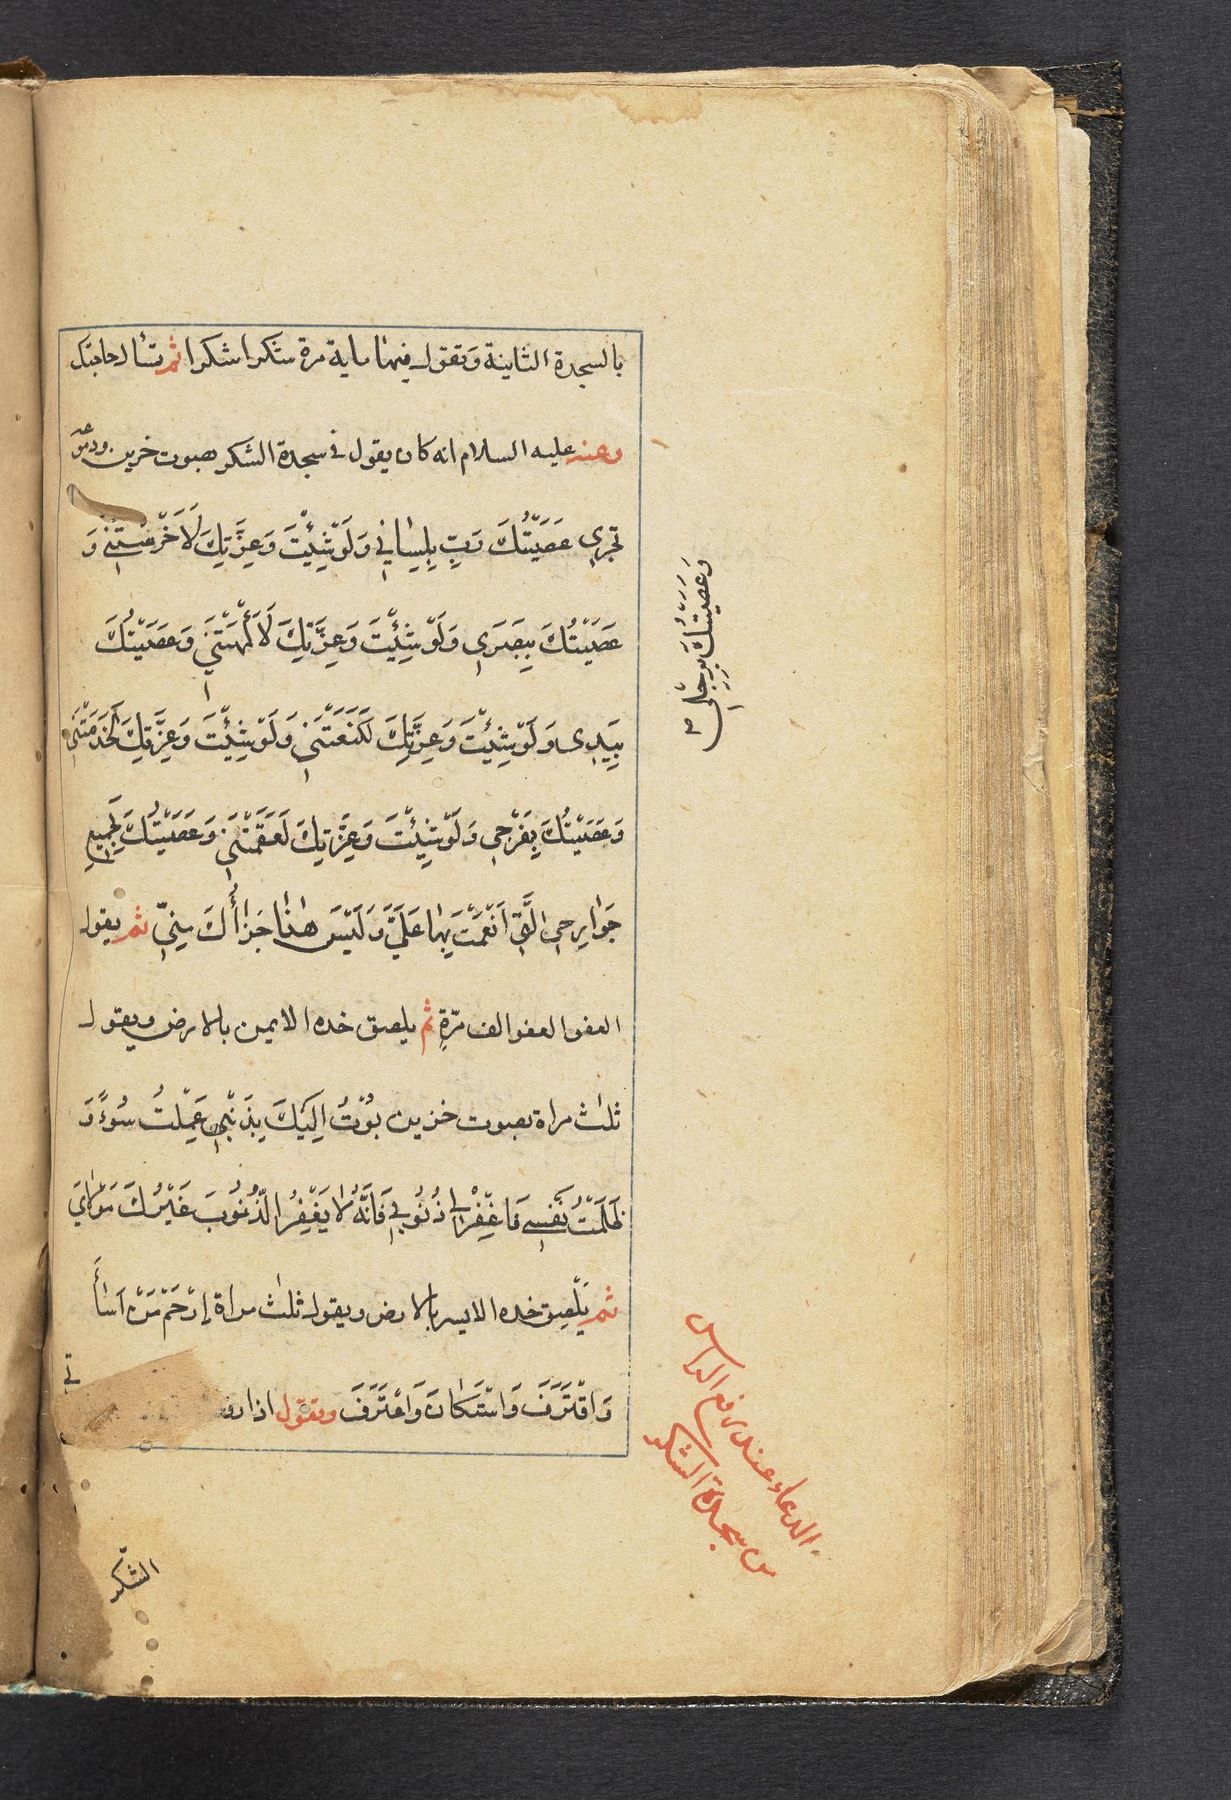 بالسجدة الثانية وتقول فيها ماية مرة شكرا شكرا ثم تسأل حاجتك
وعنه عليه السلام انه كان يقول في سجدة الشكر بصوت حزين ودموعه
تجري عَصَيْتُكَ رَبِّ بِلِسَانِي وَلَوْ شِئْتَ وَعِزَّتِكَ لَاَخْرَسْتَنِي وَ
عَصَيْتُكَ بِبَصَرِي وَلَوْ شِئْتَ وَعِزَّتِكَ لَاَكْمَهْتَنِي وَعَصَيْتُكَ
بِيَدِى وَلَوْ شِئْتَ وَعِزَّتِكَ لَكَنَعْتَنِي وَلَوْ شِئْتَ وَعِزَّتِكَ لَجَذَمْتَنِي
وَعَصَيْتُكَ بِفَرْجِي وَلَوْ شِئْتَ وَعِزَّتِكَ لَعَقَمْتَنِي وَعَصَيْتُكَ بِجَمِيعِ
جَوَارِحِي الَّتِي اَنْعَمْتَ بِهَا عَلَيَّ وَلَيْسَ هٰذَا جَزَاؤُكَ مِنِّي ثم يقول
العفو العفو الف مرّةٍ ثم يلصق خده الايمن بالارض ويقول
ثلث مراة بصوت حزين بُؤْتُ اِلَيْكَ بِذَنْبِي عَمِلْتُ سُوءًا وَ
ظَلَمْتُ نَفْسِي فَاغْفِرْ لِي ذُنُوبِي فَاِنَّهُ لَا يَغْفِرُ الذُّنُوبَ غَيْرُكَ مَوْلَايَ
ثم يَلْصِق خده الايسر بالارض ويقول ثلث مراة اِرْحَمْ مَنْ اَسَاءَ
وَاقْتَرَفَ وَاسْتَكَانَ وَاعْتَرَفَ ويقول اذا
وَعَصَيْتُكَ بِرِجْلِي
الدعاء عند رفع الراس
من سجدة الشكر
الشّكر